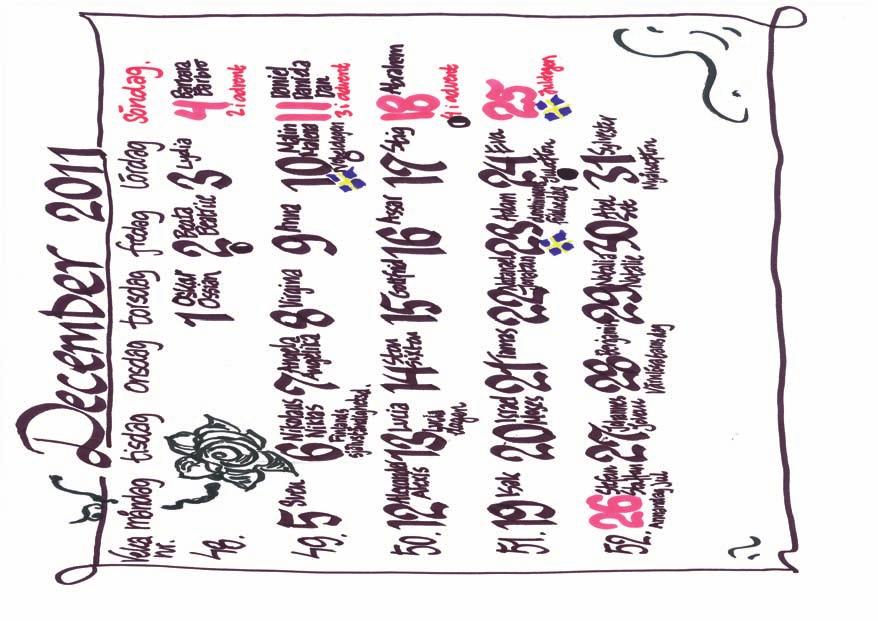 December 2011
Vecka nr.
måndag tisdag onsdag torsdag fredag lördag Söndag.
48.
1 Oscar Ossian
2 Beata Beatrice
3 Lydia
4 Barbara Barbro
2 i advent
49.
5 Sven
6 Nikolaus Niklas
Finlands självständighetsd.
7 Angela Angelica
8 Virginia
9 Anna
10 Malin Malena
Nobeldagen
11 Daniel Daniela Dan
3 i advent
50.
12 Alexander Alexis
13 Lucia
Lucia dagen
14 Sten Sixten
15 Gottfrid
16 Assar
17 Stig
18 Abraham
4 i advent
51.
19 Isak
20 Israel Moses
21 Tomas
22 Natanael Jonatan
23 Adam
24 Eva
Julafton
25
Juldagen
52.
26 Stefan Staffan
Annandag Jul
27 Johannes Johan
28 Benjamin
Värnlösa barns dag
29 Natalia Natalie
30 Abel Set
31 Sylvester
Nyårsafton